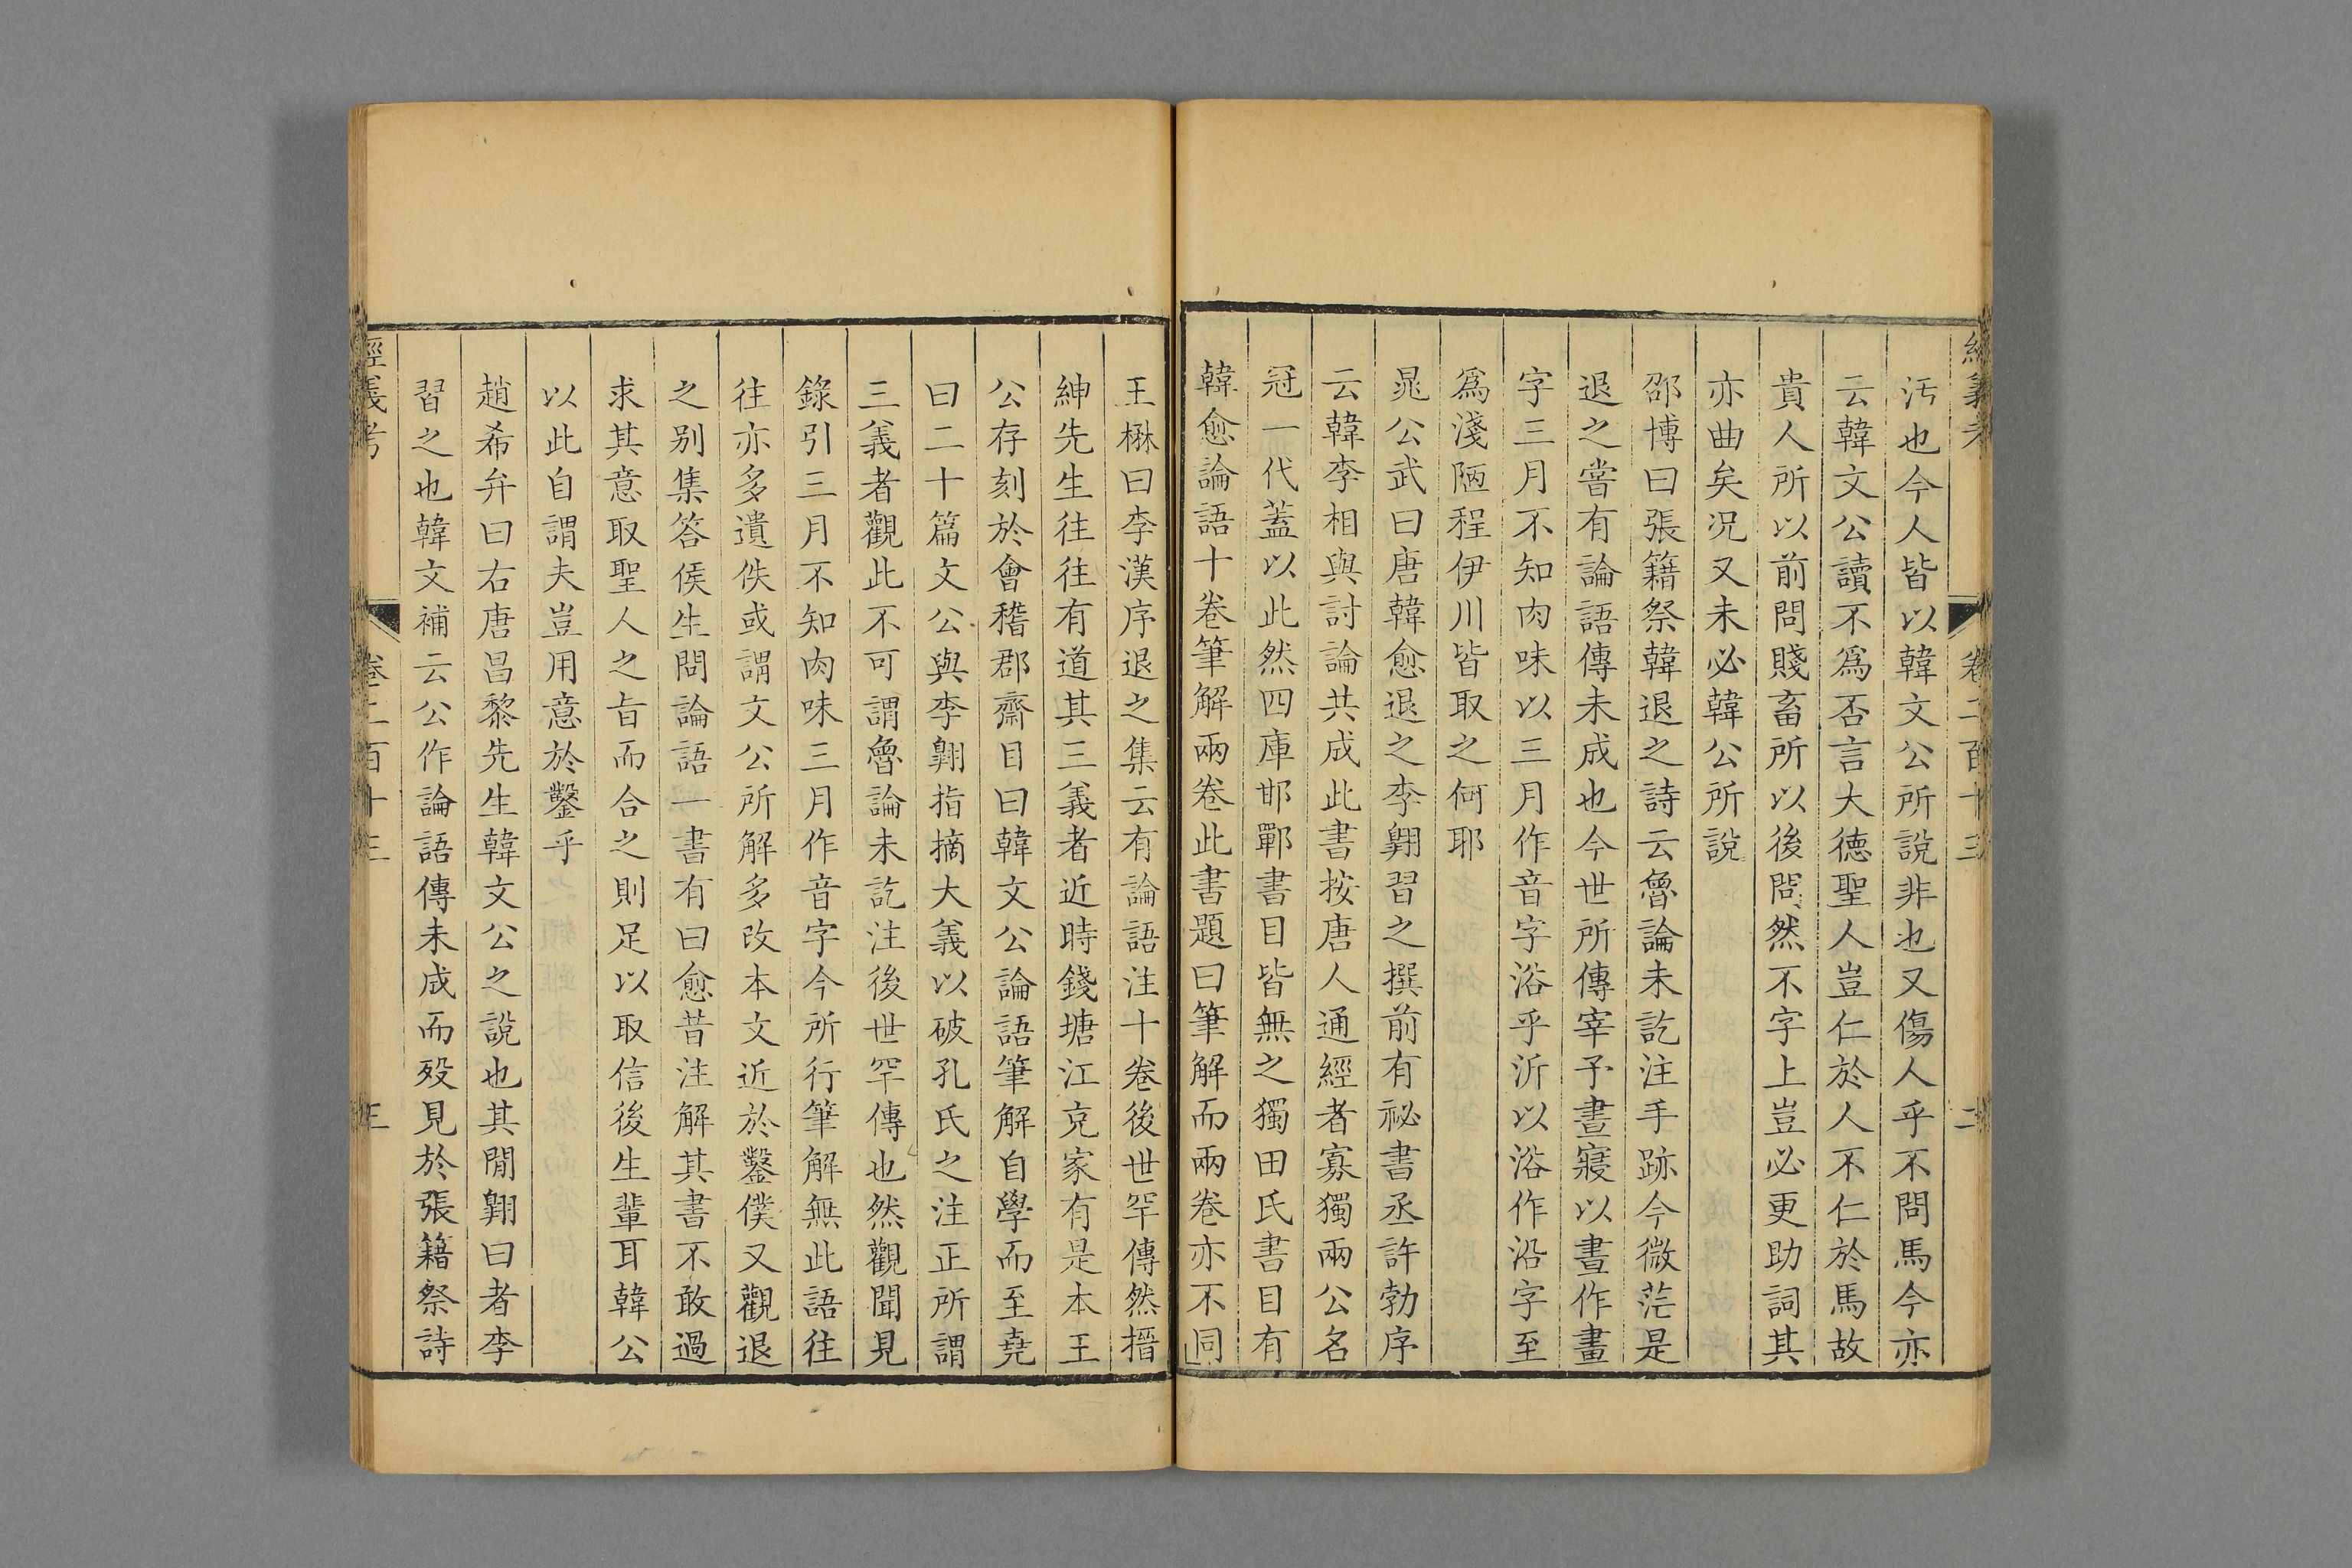 經義考 卷二百十三 二
汚也今人皆以韓文公所說非也又傷人乎不問馬今亦
云韓文公讀不爲否言大德聖人豈仁於人不仁於馬故
貴人所以前問賤畜所以後問然不字上豈必更助詞其
亦曲矣况又未必韓公所說
邵博曰張籍祭韓退之詩云魯論未訖注手跡今微茫是
退之嘗有論語傳未成也今世所傳宰予晝寢以晝作畫
字三月不知肉味以三月作音字浴乎沂以浴作沿字至
爲淺陋程伊川皆取之何耶
晁公武曰唐韓愈退之李翺習之撰前有祕書丞許勃序
云韓李相與討論共成此書按唐人通經者寡獨兩公名
冠一代蓋以此然四庫邯鄲書目皆無之獨田氏書目有
韓愈論語十卷筆解兩卷此書題曰筆解而兩卷亦不同
王楙曰李漢序退之集云有論語注十卷後世罕傳然搢
紳先生往往有道其三義者近時錢塘江克家有是本王
公存刻於會稽郡齋目曰韓文公論語筆解自學而至堯
曰二十篇文公與李翺指摘大義以破孔氏之注正所謂
三義者觀此不可謂魯論未訖注後世罕傳也然觀聞見
錄引三月不知肉味三月作音字今所行筆解無此語往
往亦多遺佚或謂文公所解多改本文近於鑿僕又觀退
之别集答侯生問論語一書有曰愈昔注解其書不敢過
求其意取聖人之旨而合之則足以取信後生輩耳韓公
以此自謂夫豈用意於鑿乎
趙希弁曰右唐昌黎先生韓文公之說也其閒翺曰者李
習之也韓文補云公作論語傳未成而歿見於張籍祭詩
經義考 卷二百十三 三